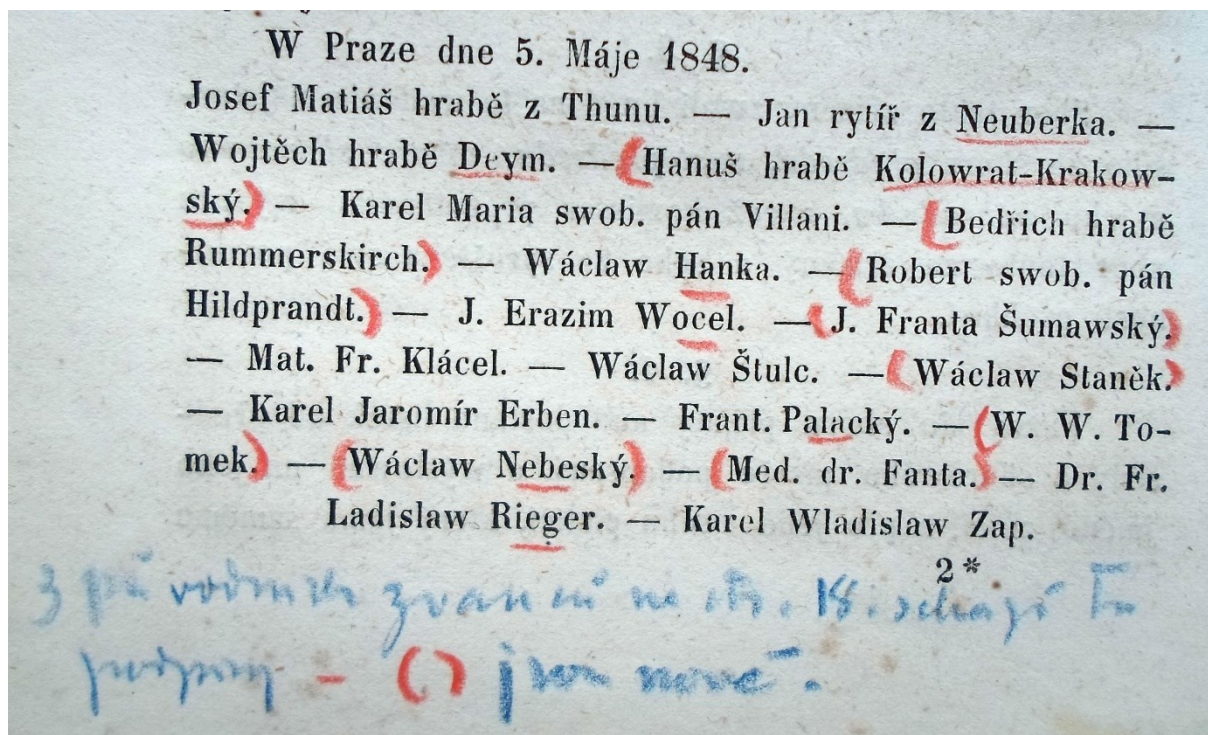 W Praze dne 5. Máje 1848.
Josef Matiáš hrabě z Thunu. — Jan rytíř z Neuberka. —
Wojtěch hrabě Deym. — (Hanuš hrabě Kolowrat-Krakow-
ský.) — Karel Maria swob. pán Villani. — (Bedřich hrabě
Rummerskirch.) — Wáclaw Hanka. — (Robert swob. pán
Hildprandt.) — J. Erazim Wocel. — (J. Franta Šumawský.)
— Mat. Fr. Klácel. — Wáclaw Štulc. — (Wáclaw Staněk.)
— Karel Jaromír Erben. — Frant. Palacký. — (W. W. To-
mek.) — (Wáclaw Nebeský.) — (Med. dr. Fanta.) — Dr. Fr.
Ladislaw Rieger. — Karel Wladislaw Zap.
2*
na str. 18. schází tu
podpisy – () jsou nové.